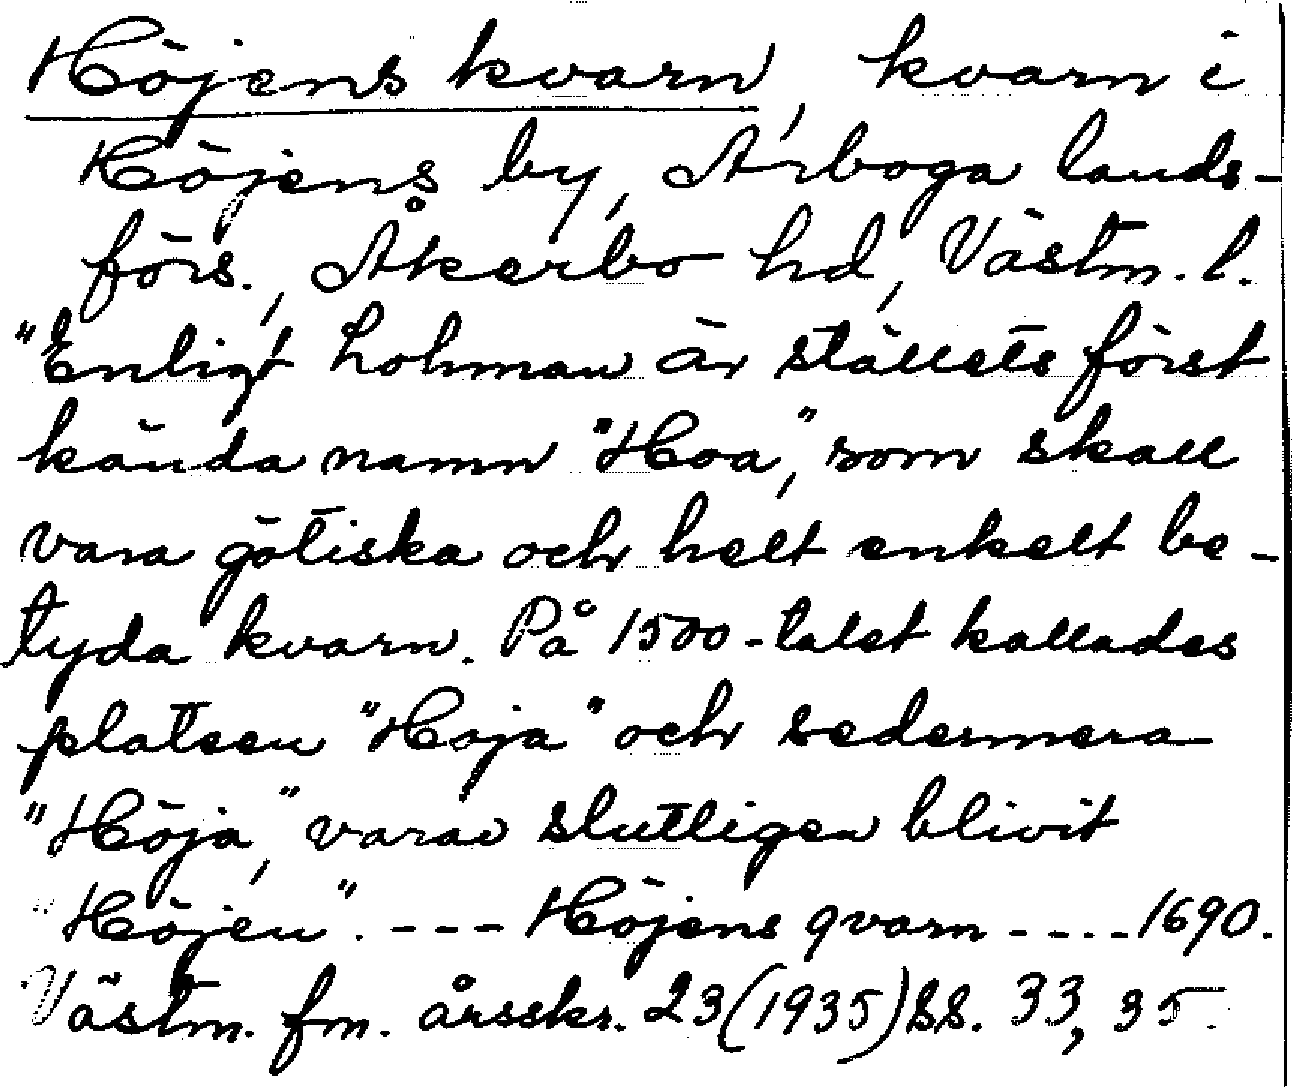 Höjens kvarn, kvarn i
Höjens by, Arboga lands-
förs., Åkerbo hd, Västm. l.
"Enligt Lohman är ställets först
kända namn "Hoa", som skall
vara götiska och helt enkelt be-
tyda kvarn. På 1500-talet kallades
platsen "Hoja" och sedermera
"Höja", varav slutligen blivit
"Höjen". --- Höjens qvarn ---- 1690.
Västm. fm. årsskr. 23 (1935) SS. 33, 35.